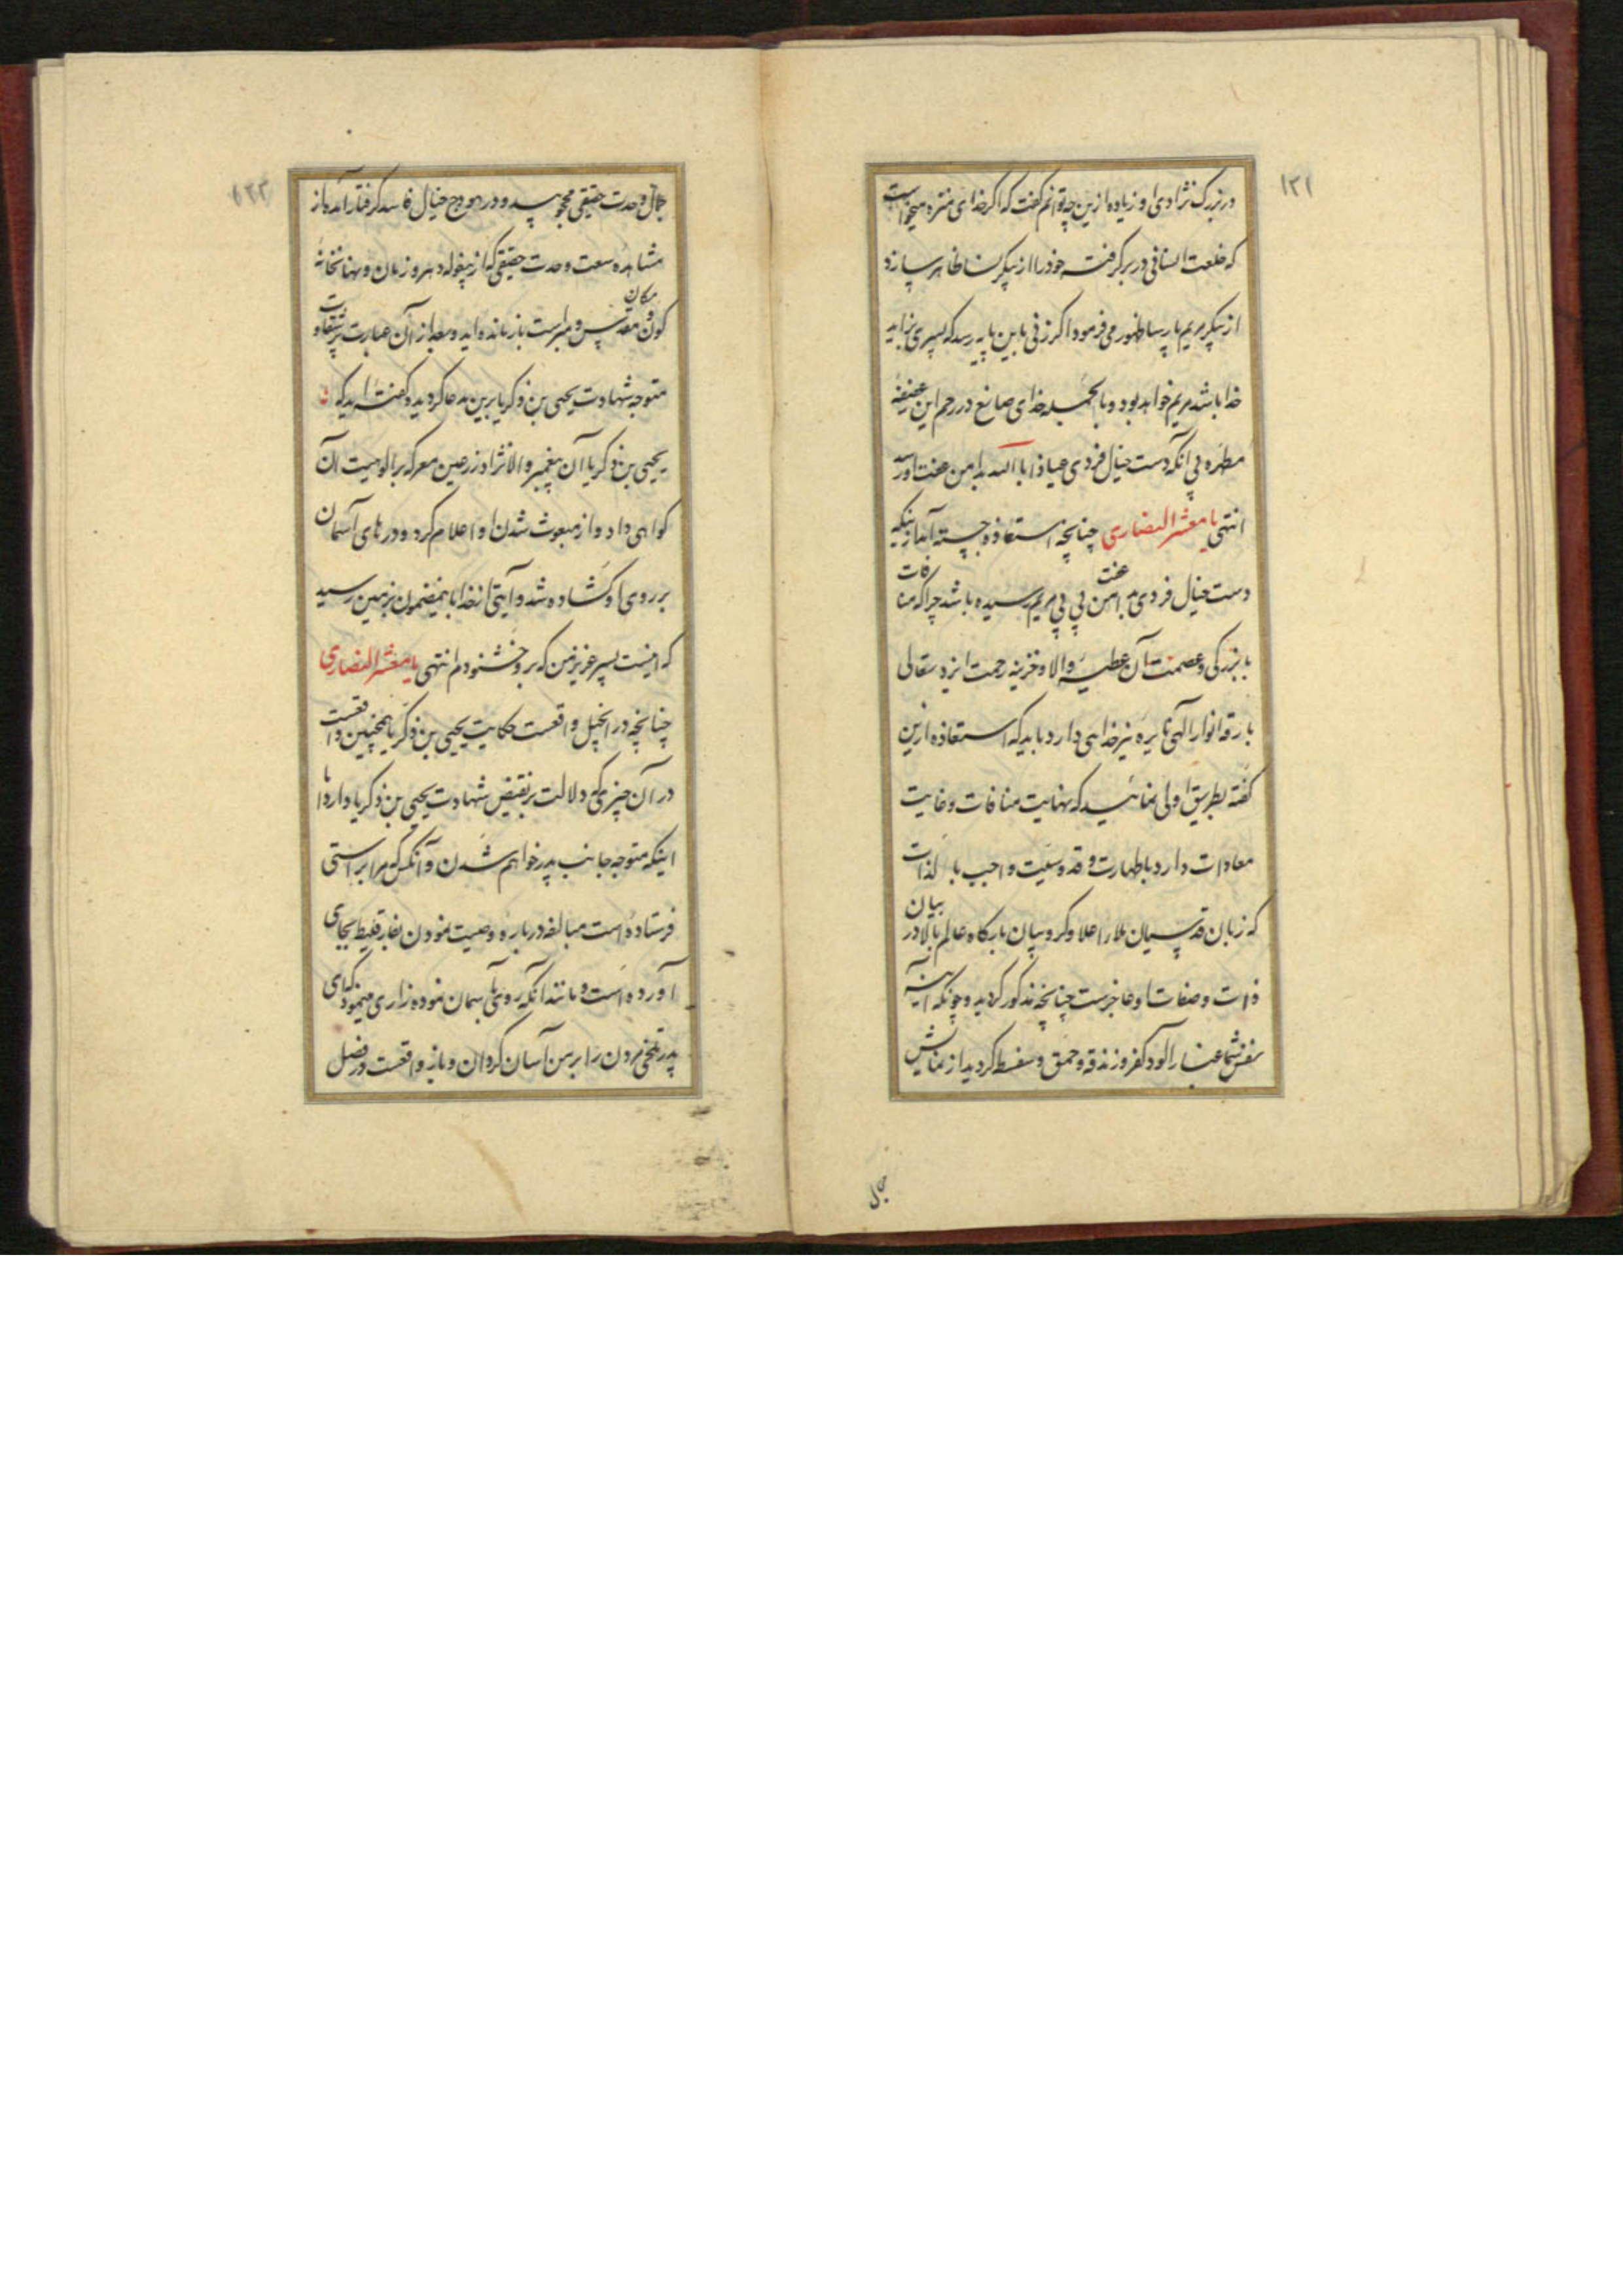 ۱۳۱
در بزرگ نژادی او زیاده ازین چه توانم گفت که اگر خدای منزه میخواست
که خلعت انسانی در بر گرفته خود را از پیکر نسا ظاهر سازد
از پیکر مریم پارسا ظهور می فرمود اگر زنی باین پایه رسد که پسری بزاید
خدا باشد مریم خواهد بود و بالجمله خدای صانع در رحم این عفیفه
مطهره بی آنکه دست خیال فردی عیاذا بالله بدامن عفت او رسد
انتهی یا معشر النصاری چنانچه استعاذه جسته آمد از اینکه
دست خیال فردی بدامن عفت بی بی مریم رسیده باشد چرا که منافات
با بزرگی و عصمت آن عطیه والا و خزینه رحمت ایزد تعالی
بارقه انوار الهی نایره نیز خدایی دارد باید که استعاذه ازین
گفته بطریق اولی نمائید که نهایت منافات و غایت
معادات دارد با طهارت و قدوسیت واجب بالذات
که زبان قدسیان ملاء اعلا و کروبیان بارگاه عالم بالا در بیان
ذات و صفات او عاجزست چنانچه مذکور گردید و چونکه آینه
نفس شما غبار آلود کفر و زندقه و حمق و سفسطه گردید از نمایش
جمال
۱۳۲
جمال وحدت حقیقی محجوبید و در هودج خیال فاسد گرفتار آمده از
مشاهده سعت وحدت حقیقی که از بیغوله دهر و زمان و نهانخانه
کون و مکان مقدس و مبراست باز مانده اید و بعد از آن عبارت پر شقاوت
متوجه شهادت یحیی بن زکریا برین مدعا گردیده گفته اید که
یحیی بن زکریا آن پیغمبر والا نژاد در عین معرکه بر الوهیت آن
گواهی داد و از مبعوث شدن او اعلام کرد و درهای آسمان
بر روی او گشاده شد و آیتی از خدا باینمضمون بزمین رسید
که اینست پسر عزیز من که برو خشنودم انتهی یا معشر النصاری
چنانچه در انجیل واقعست حکایت یحیی بن زکریا همچنین واقعست
در آن چیزی که دلالت بر نقیض شهادت یحیی بن زکریا دارد با
اینکه متوجه جانب پدر خواهم شدن و آنکس که مرا براستی
فرستاده است مبالغه در باره وصیت نمودن بفارقلیط بجای
آورده است و مانند آنکه روی بآسمان نموده زاری مینمود که ای
پدر تلخی مردن را بر من آسان گردان و باز واقعست در فصل